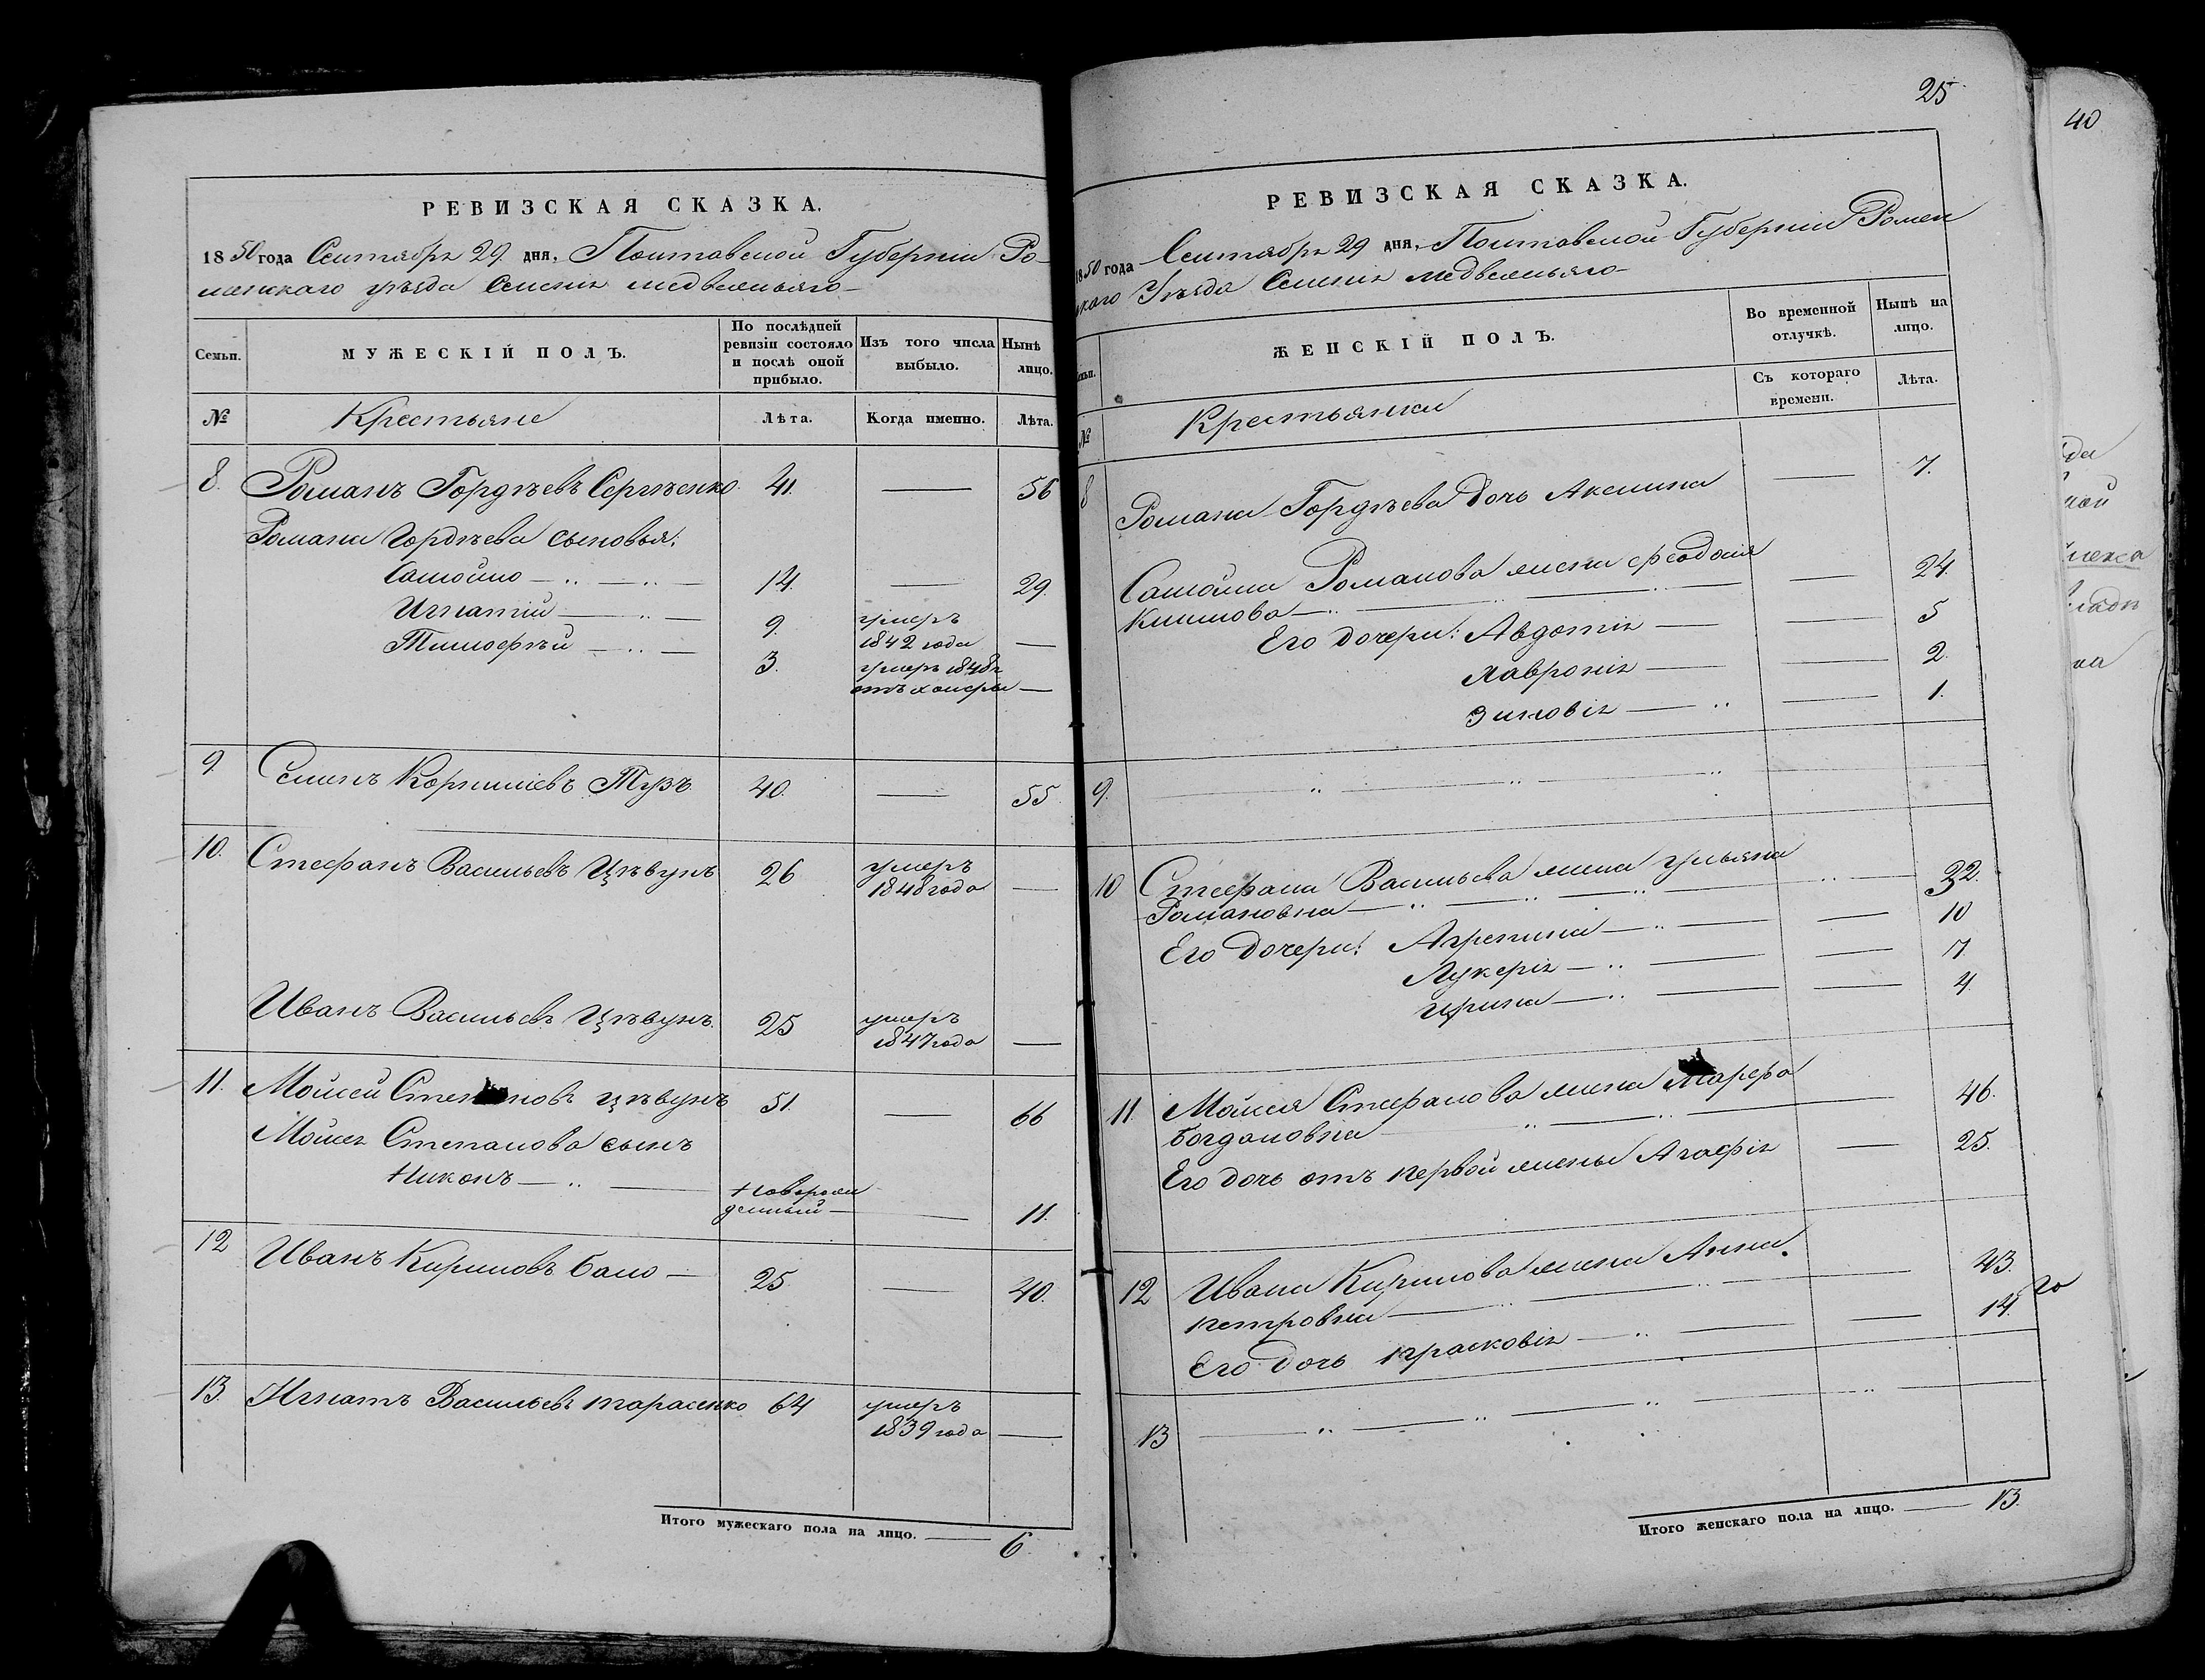 РЕВИЗСКАЯ СКАЗКА.
1850 года Сентября 29 дня, Полтавской Губерніи Ро-
менскаго уѣзда Селенія Медвежьяго
Семьи.
МУЖЕСКІЙ ПОЛЪ.
По послѣдней ревизіи состояло и послѣ оной прибыло.
Изъ того числа выбыло.
Нынѣ лицо.
№
Крестьяне
Лѣта.
Когда именно.
Лѣта.
8. Романъ Гордѣевъ Сергѣенко 41. — 56
Романа Гордѣева сыновья:
Самойло 14. — 29.
Игнатій 9. умеръ 1842 года —
Тимофѣй 3. умеръ 1848 г отъ холеры —
9. Семенъ Корниліевъ Тузъ 40. — 55.
10. Стефанъ Васильевъ Цѣвунъ 26 умеръ 1848 года —
Иванъ Васильевъ Цѣвунъ. 25 умеръ 1847 года —
11. Мойсей Степановъ Цѣвунъ 51. — 66
Мойсея Степанова сынъ
Никонъ Новорожденный — 11.
12 Иванъ Кириловъ 25. — 40.
13. Игнатъ Васильевъ Тарасенко 64 умеръ 1839 года —
Итого мужескаго пола на лицо. — 6
25
РЕВИЗСКАЯ СКАЗКА.
1850 года Сентября 29 дня, Полтавской Губерніи Ромен
скаго Уѣзда Селенія Медвежьяго
ЖЕНСКІЙ ПОЛЪ.
Во временной отлучкѣ.
Нынѣ на лицо.
Съ котораго времени.
Лѣта.
№
Крестьянки
8 Романа Гордѣева дочь Аксинія — 7.
Самойла Романова жена Феодосія
Климова — 24.
Его дочери: Авдотія — 5
Лавронія — 2.
Зиновія — 1.
9.
10 Стефана Васильева жена Ульяна
Романовна — 32.
Его дочери: Агрепина — 10
Лукерія — 7
Ирина — 4.
11. Мойсея Стефанова жена Марфа
Богдановна 46.
Его дочь отъ первой жены Агафія — 25.
12 Ивана Кирилова жена Анна
Петровна 43.
Его дочь Прасковія — 14.
13
Итого женскаго пола на лицо. — 13.
40